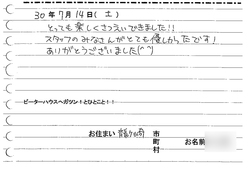 30年7月14日(土)
とっても楽しくさつえいできました!!
スタッフのみなさんがとても優しかったです!
ありがとうございました(^^)
ピーターハウスへガツン!とひとこと!!
お住まい 龍ヶ崎 市
町
村 お名前